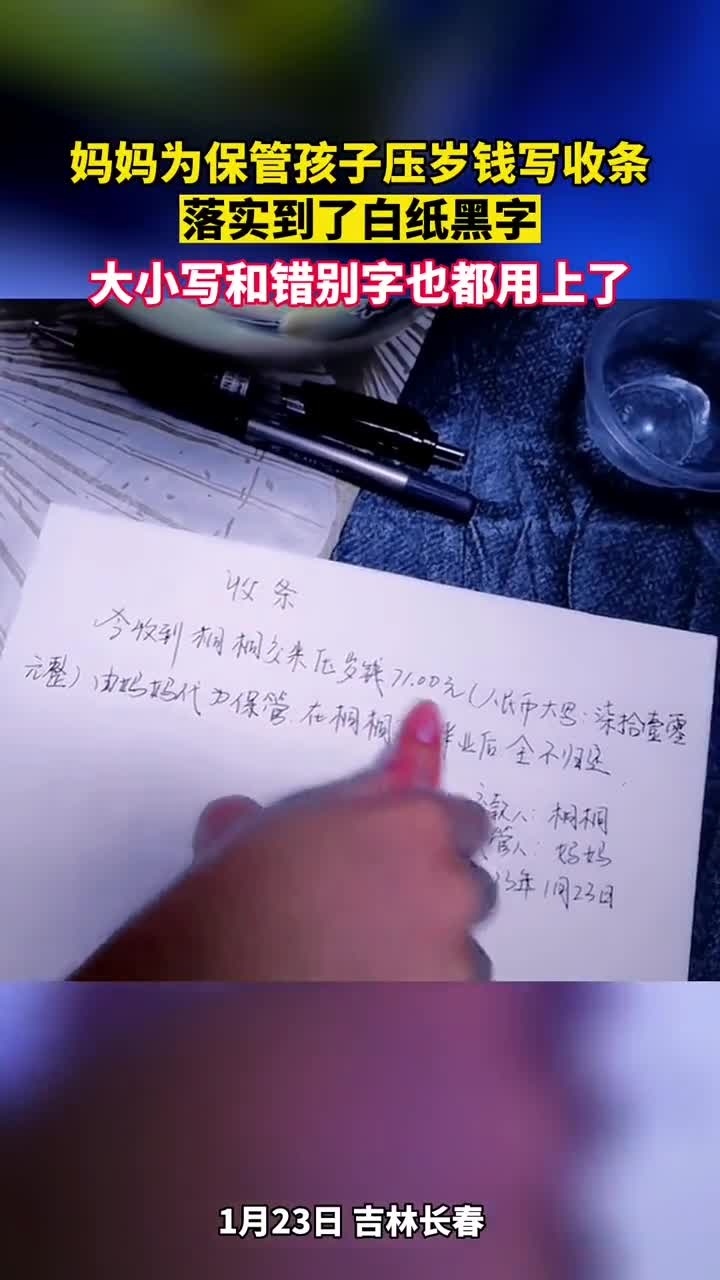 妈妈为保管孩子压岁钱写收条
落实到了白纸黑字
大小写和错别字也都用上了
收条
今收到桐桐交来压岁钱71.00元(人民币大写:柒拾壹零
元整)由妈妈代为保管.在桐桐毕业后全不归还.
款人:桐桐
管人:妈妈
23年1月23日
1月23日 吉林长春